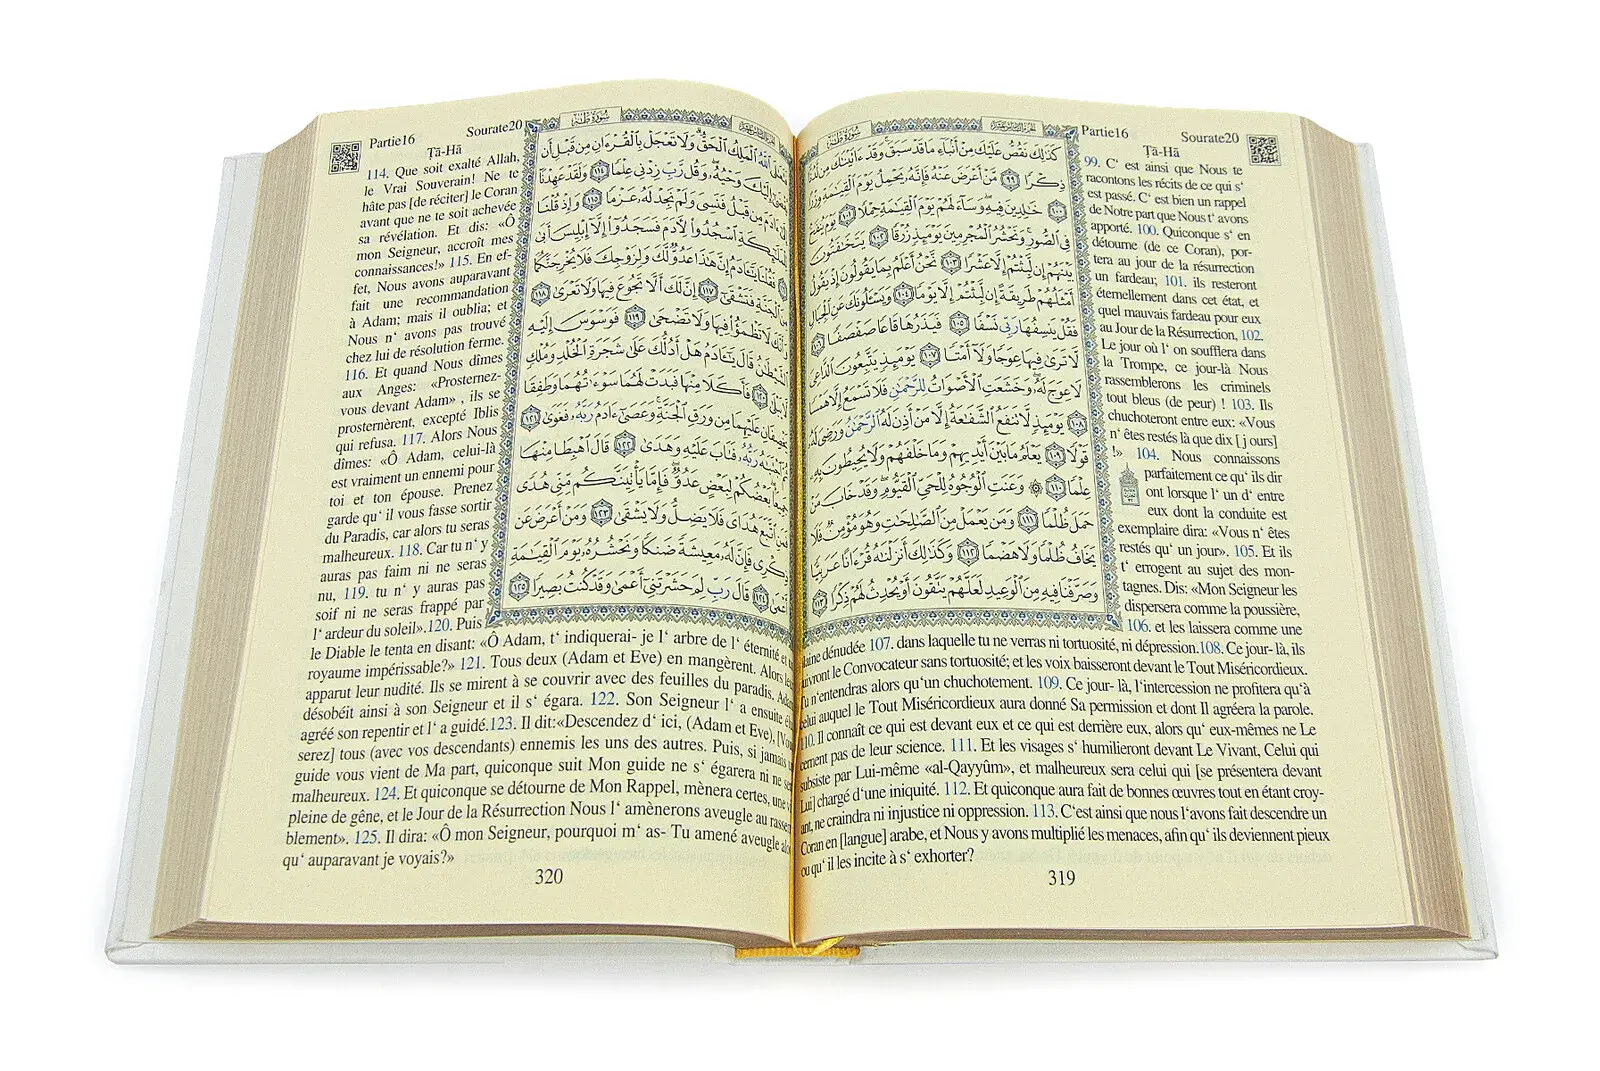 Partie16
Sourate20
Ṭā-Hā
سُورَةُ طه
الجزء السادس عشر
كَذَٰلِكَ نَقُصُّ عَلَيْكَ مِنْ أَنۢبَآءِ مَا قَدْ سَبَقَۚ وَقَدْ ءَاتَيْنَٰكَ مِن لَّدُنَّا
ذِكْرًا ٩٩ مَّنْ أَعْرَضَ عَنْهُ فَإِنَّهُۥ يَحْمِلُ يَوْمَ ٱلْقِيَٰمَةِ وِزْرًا
١٠٠ خَٰلِدِينَ فِيهِۖ وَسَآءَ لَهُمْ يَوْمَ ٱلْقِيَٰمَةِ حِمْلًا ١٠١ يَوْمَ يُنفَخُ
فِى ٱلصُّورِۚ وَنَحْشُرُ ٱلْمُجْرِمِينَ يَوْمَئِذٍ زُرْقًا ١٠٢ يَتَخَٰفَتُونَ
بَيْنَهُمْ إِن لَّبِثْتُمْ إِلَّا عَشْرًا ١٠٣ نَّحْنُ أَعْلَمُ بِمَا يَقُولُونَ إِذْ يَقُولُ
أَمْثَلُهُمْ طَرِيقَةً إِن لَّبِثْتُمْ إِلَّا يَوْمًا ١٠٤ وَيَسْـَٔلُونَكَ عَنِ ٱلْجِبَالِ
فَقُلْ يَنسِفُهَا رَبِّى نَسْفًا ١٠٥ فَيَذَرُهَا قَاعًا صَفْصَفًا ١٠٦
لَّا تَرَىٰ فِيهَا عِوَجًا وَلَآ أَمْتًا ١٠٧ يَوْمَئِذٍ يَتَّبِعُونَ ٱلدَّاعِىَ
لَا عِوَجَ لَهُۥۖ وَخَشَعَتِ ٱلْأَصْوَاتُ لِلرَّحْمَٰنِ فَلَا تَسْمَعُ إِلَّا هَمْسًا
١٠٨ يَوْمَئِذٍ لَّا تَنفَعُ ٱلشَّفَٰعَةُ إِلَّا مَنْ أَذِنَ لَهُ ٱلرَّحْمَٰنُ وَرَضِىَ لَهُۥ
قَوْلًا ١٠٩ يَعْلَمُ مَا بَيْنَ أَيْدِيهِمْ وَمَا خَلْفَهُمْ وَلَا يُحِيطُونَ بِهِۦ
عِلْمًا ١١٠ ۞ وَعَنَتِ ٱلْوُجُوهُ لِلْحَىِّ ٱلْقَيُّومِۖ وَقَدْ خَابَ مَنْ
حَمَلَ ظُلْمًا ١١١ وَمَن يَعْمَلْ مِنَ ٱلصَّٰلِحَٰتِ وَهُوَ مُؤْمِنٌ فَلَا
يَخَافُ ظُلْمًا وَلَا هَضْمًا ١١٢ وَكَذَٰلِكَ أَنزَلْنَٰهُ قُرْءَانًا عَرَبِيًّا
وَصَرَّفْنَا فِيهِ مِنَ ٱلْوَعِيدِ لَعَلَّهُمْ يَتَّقُونَ أَوْ يُحْدِثُ لَهُمْ ذِكْرًا ١١٣
99. C' est ainsi que Nous te
racontons les récits de ce qui s'
est passé. C' est bien un rappel
de Notre part que Nous t' avons
apporté. 100. Quiconque s' en
détourne (de ce Coran), por-
tera au jour de la résurrection
un fardeau; 101. ils resteront
éternellement dans cet état, et
quel mauvais fardeau pour eux
au Jour de la Résurrection, 102.
Le jour où l' on soufflera dans
la Trompe, ce jour-là Nous
rassemblerons les criminels
tout bleus (de peur) ! 103. Ils
chuchoteront entre eux: «Vous
n' êtes restés là que dix [ j ours]
!» 104. Nous connaissons
parfaitement ce qu' ils dir
ont lorsque l' un d' entre
eux dont la conduite est
exemplaire dira: «Vous n' êtes
restés qu' un jour». 105. Et ils
t' errogent au sujet des mon-
tagnes. Dis: «Mon Seigneur les
dispersera comme la poussière,
106. et les laissera comme une
laine dénudée 107. dans laquelle tu ne verras ni tortuosité, ni dépression.108. Ce jour- là, ils
uivront le Convocateur sans tortuosité; et les voix baisseront devant le Tout Miséricordieux.
Tu n'entendras alors qu'un chuchotement. 109. Ce jour- là, l'intercession ne profitera qu'à
celui auquel le Tout Miséricordieux aura donné Sa permission et dont Il agréera la parole.
110. Il connaît ce qui est devant eux et ce qui est derrière eux, alors qu' eux-mêmes ne Le
cernent pas de leur science. 111. Et les visages s' humilieront devant Le Vivant, Celui qui
subsiste par Lui-même «al-Qayyûm», et malheureux sera celui qui [se présentera devant
Lui] chargé d'une iniquité. 112. Et quiconque aura fait de bonnes œuvres tout en étant croy-
ant, ne craindra ni injustice ni oppression. 113. C'est ainsi que nous l'avons fait descendre un
Coran en [langue] arabe, et Nous y avons multiplié les menaces, afin qu' ils deviennent pieux
ou qu' il les incite à s' exhorter?
319
Partie16
Sourate20
Ṭā-Hā
سُورَةُ طه
الجزء السادس عشر
ٱللَّهُ ٱلْمَلِكُ ٱلْحَقُّۗ وَلَا تَعْجَلْ بِٱلْقُرْءَانِ مِن قَبْلِ أَن
إِلَيْكَ وَحْيُهُۥۖ وَقُل رَّبِّ زِدْنِى عِلْمًا ١١٤ وَلَقَدْ عَهِدْنَآ
ءَادَمَ مِن قَبْلُ فَنَسِىَ وَلَمْ نَجِدْ لَهُۥ عَزْمًا ١١٥ وَإِذْ قُلْنَا
ٱسْجُدُوا۟ لِءَادَمَ فَسَجَدُوٓا۟ إِلَّآ إِبْلِيسَ أَبَىٰ
فَقُلْنَا يَٰٓـَٔادَمُ إِنَّ هَٰذَا عَدُوٌّ لَّكَ وَلِزَوْجِكَ فَلَا يُخْرِجَنَّكُمَا
ٱلْجَنَّةِ فَتَشْقَىٰٓ ١١٧ إِنَّ لَكَ أَلَّا تَجُوعَ فِيهَا وَلَا تَعْرَىٰ ١١٨
لَا تَظْمَؤُا۟ فِيهَا وَلَا تَضْحَىٰ ١١٩ فَوَسْوَسَ إِلَيْهِ
ٱلشَّيْطَٰنُ قَالَ يَٰٓـَٔادَمُ هَلْ أَدُلُّكَ عَلَىٰ شَجَرَةِ ٱلْخُلْدِ وَمُلْكٍ
١٢٠ فَأَكَلَا مِنْهَا فَبَدَتْ لَهُمَا سَوْءَٰتُهُمَا وَطَفِقَا
عَلَيْهِمَا مِن وَرَقِ ٱلْجَنَّةِۚ وَعَصَىٰٓ ءَادَمُ رَبَّهُۥ فَغَوَىٰ ١٢١
رَبُّهُۥ فَتَابَ عَلَيْهِ وَهَدَىٰ ١٢٢ قَالَ ٱهْبِطَا مِنْهَا
بَعْضُكُمْ لِبَعْضٍ عَدُوٌّۖ فَإِمَّا يَأْتِيَنَّكُم مِّنِّى هُدًى
ٱتَّبَعَ هُدَاىَ فَلَا يَضِلُّ وَلَا يَشْقَىٰ ١٢٣ وَمَنْ أَعْرَضَ عَن
ذِكْرِى فَإِنَّ لَهُۥ مَعِيشَةً ضَنكًا وَنَحْشُرُهُۥ يَوْمَ ٱلْقِيَٰمَةِ
١٢٤ قَالَ رَبِّ لِمَ حَشَرْتَنِىٓ أَعْمَىٰ وَقَدْ كُنتُ بَصِيرًا ١٢٥
114. Que soit exalté Allah,
le Vrai Souverain! Ne te
hâte pas [de réciter] le Coran
avant que ne te soit achevée
sa révélation. Et dis: «Ô
mon Seigneur, accroît mes
connaissances!» 115. En ef-
fet, Nous avons auparavant
fait une recommandation
à Adam; mais il oublia; et
Nous n' avons pas trouvé
chez lui de résolution ferme.
116. Et quand Nous dîmes
aux Anges: «Prosternez-
vous devant Adam» , ils se
prosternèrent, excepté Iblis
qui refusa. 117. Alors Nous
dîmes: «Ô Adam, celui-là
est vraiment un ennemi pour
toi et ton épouse. Prenez
garde qu' il vous fasse sortir
du Paradis, car alors tu seras
malheureux. 118. Car tu n' y
auras pas faim ni ne seras
nu, 119. tu n' y auras pas
soif ni ne seras frappé par
l' ardeur du soleil».120. Puis
le Diable le tenta en disant: «Ô Adam, t' indiquerai- je l' arbre de l' éternité et
royaume impérissable?» 121. Tous deux (Adam et Eve) en mangèrent. Alors
apparut leur nudité. Ils se mirent à se couvrir avec des feuilles du paradis. Adam
désobéit ainsi à son Seigneur et il s' égara. 122. Son Seigneur l' a ensuite
agréé son repentir et l' a guidé.123. Il dit:«Descendez d' ici, (Adam et Eve),
serez] tous (avec vos descendants) ennemis les uns des autres. Puis, si jamais
guide vous vient de Ma part, quiconque suit Mon guide ne s' égarera ni ne
malheureux. 124. Et quiconque se détourne de Mon Rappel, mènera certes, une
pleine de gêne, et le Jour de la Résurrection Nous l' amènerons aveugle au
blement». 125. Il dira: «Ô mon Seigneur, pourquoi m' as- Tu amené aveugle
qu' auparavant je voyais?»
320